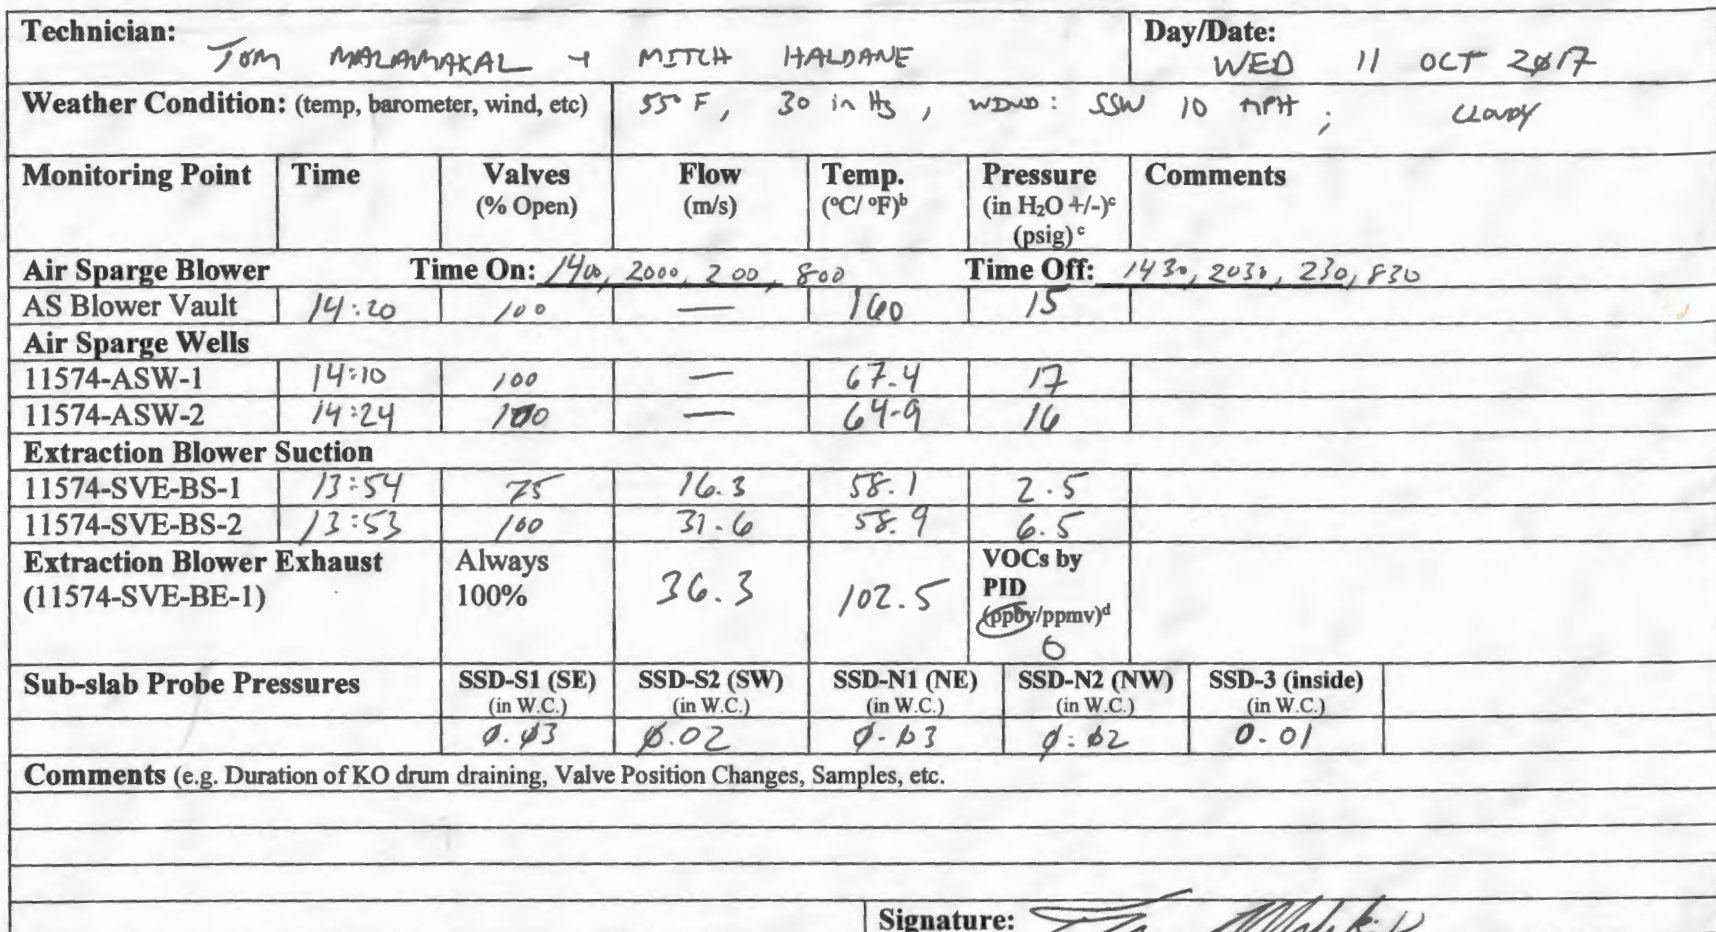 Technician: Day/Date:
TOM MALAMAKAL + MITCH HALDANE WED 11 OCT 2017
Weather Condition: (temp, barometer, wind, etc) 55° F, 30 in Hg, WIND: SSW 10 MPH; CLOUDY
Monitoring Point Time Valves Flow Temp. Pressure Comments
(% Open) (m/s) (°C/ °F)ᵇ (in H₂O +/-)ᶜ
(psig)ᶜ
Air Sparge Blower Time On: 1400, 2000, 200, 800 Time Off: 1430, 2030, 230, 830
AS Blower Vault 14:20 100 — 160 15
Air Sparge Wells
11574-ASW-1 14:10 100 — 67.4 17
11574-ASW-2 14:24 100 — 64.9 16
Extraction Blower Suction
11574-SVE-BS-1 13:54 75 16.3 58.1 2.5
11574-SVE-BS-2 13:53 100 31.6 58.9 6.5
Extraction Blower Exhaust Always VOCs by
(11574-SVE-BE-1) 100% 36.3 102.5 PID
(ppbv/ppmv)ᵈ
0
Sub-slab Probe Pressures SSD-S1 (SE) SSD-S2 (SW) SSD-N1 (NE) SSD-N2 (NW) SSD-3 (inside)
(in W.C.) (in W.C.) (in W.C.) (in W.C.) (in W.C.)
0.03 0.02 0.03 0.02 0.01
Comments (e.g. Duration of KO drum draining, Valve Position Changes, Samples, etc.
Signature: